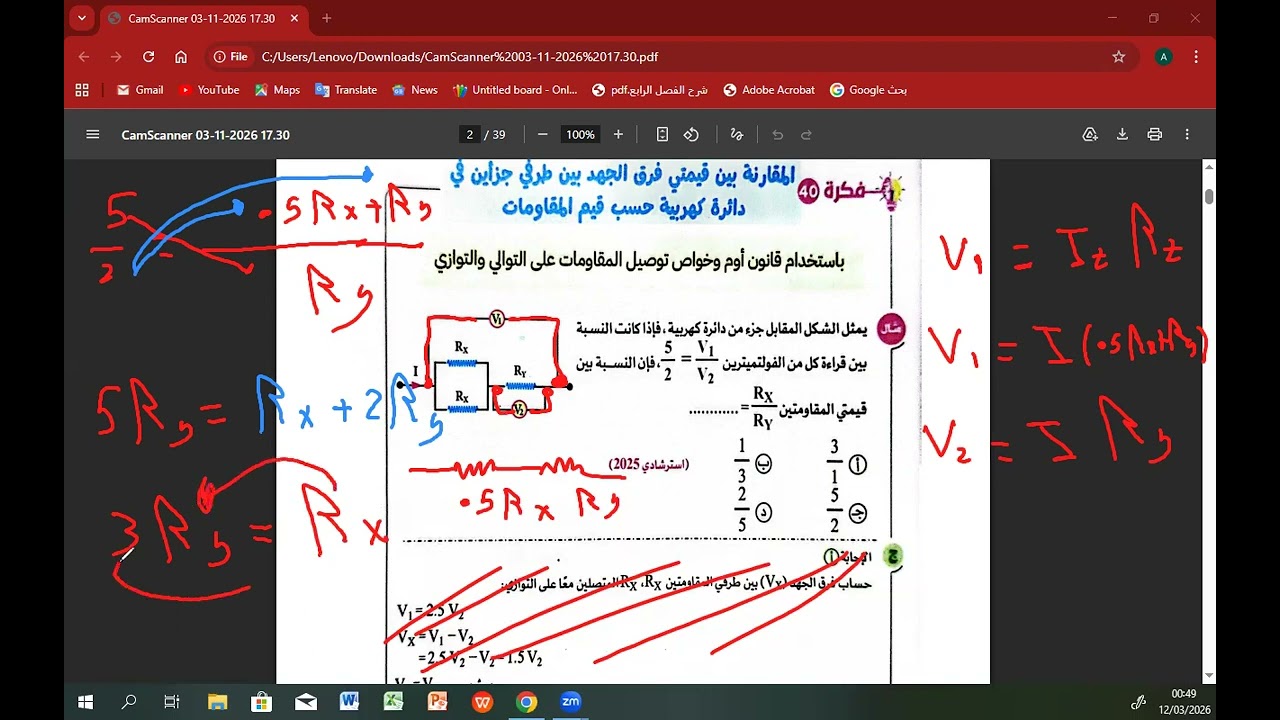 CamScanner 03-11-2026 17.30
File C:/Users/Lenovo/Downloads/CamScanner%2003-11-2026%2017.30.pdf A
Gmail YouTube Maps Translate News Untitled board - Onl... شرح الفصل الرابع.pdf Adobe Acrobat بحث Google
CamScanner 03-11-2026 17.30 2 / 39 100%
فكرة 40 المقارنة بين قيمتي فرق الجهد بين طرفي جزأين في
دائرة كهربية حسب قيم المقاومات
باستخدام قانون أوم وخواص توصيل المقاومات على التوالي والتوازي
مثال يمثل الشكل المقابل جزء من دائرة كهربية، فإذا كانت النسبة
بين قراءة كل من الفولتميترين V₁/V₂ = 5/2، فإن النسبة بين
قيمتي المقاومتين R_X/R_Y = ............
أ 3/1 ب 1/3
ج 5/2 د 2/5
(استرشادي 2025)
V₁
R_X
R_Y
I
R_X
V₂
ج الإجابة أ
حساب فرق الجهد (V_X) بين طرفي المقاومتين R_X، R_X المتصلين معًا على التوازي:
V₁ = 2.5 V₂
V_X = V₁ − V₂
= 2.5 V₂ − V₂ = 1.5 V₂
5/2 = .5Rx+Ry / Ry
5Ry = Rx + 2Ry
3Ry = Rx
.5Rx Ry
V₁ = I_z R_z
V₁ = I(.5Rx+Ry)
V₂ = I Ry
00:49
12/03/2026